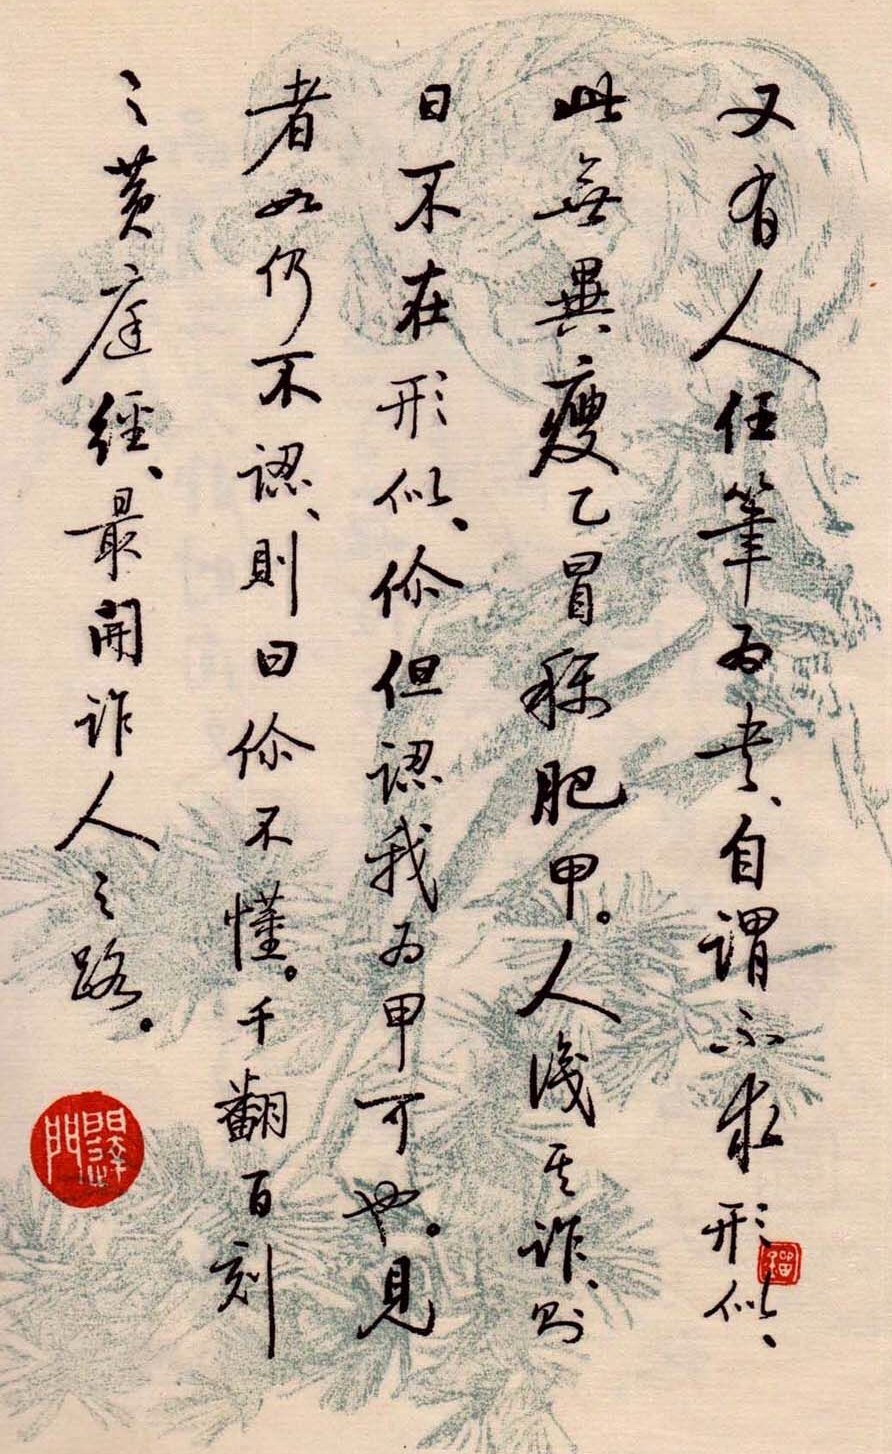 又有人任筆為書、自謂不求形似、
此無異瘦乙冒称肥甲。人識其詐、則
曰不在形似、你但認我为甲可也。見
者如仍不認、則曰你不懂。千翻百刻
之黄庭經、最開詐人之路。